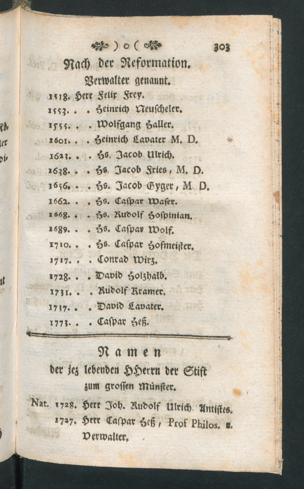 ) o ( 303
Nach der Reformation.
Verwalter genannt.
1518. Herr Felix Frey.
1553. . . Heinrich Neuscheler.
1555. . . Wolfgang Haller.
1601. . . Heinrich Lavater M. D.
1623. . . Hs. Jacob Ulrich.
1638. . . Hs. Jacob Fries, M. D.
1656. . . Hs. Jacob Gyger, M. D.
1662. . . Hs. Caspar Waser.
1668. . . Hs. Rudolf Hospinian.
1689. . . Hs. Caspar Wolf.
1710. . . Hs. Caspar Hofmeister.
1717. . . Conrad Wirz.
1728. . . David Holzhalb.
1731. . . Rudolf Kramer.
1737. . . David Lavater.
1773. . . Caspar Heß.
Namen
der jez lebenden HHerrn der Stift
zum grossen Münster.
Nat. 1728. Herr Joh. Rudolf Ulrich Antistes.
1727. Herr Caspar Heß, Prof Philos. u.
Verwalter.